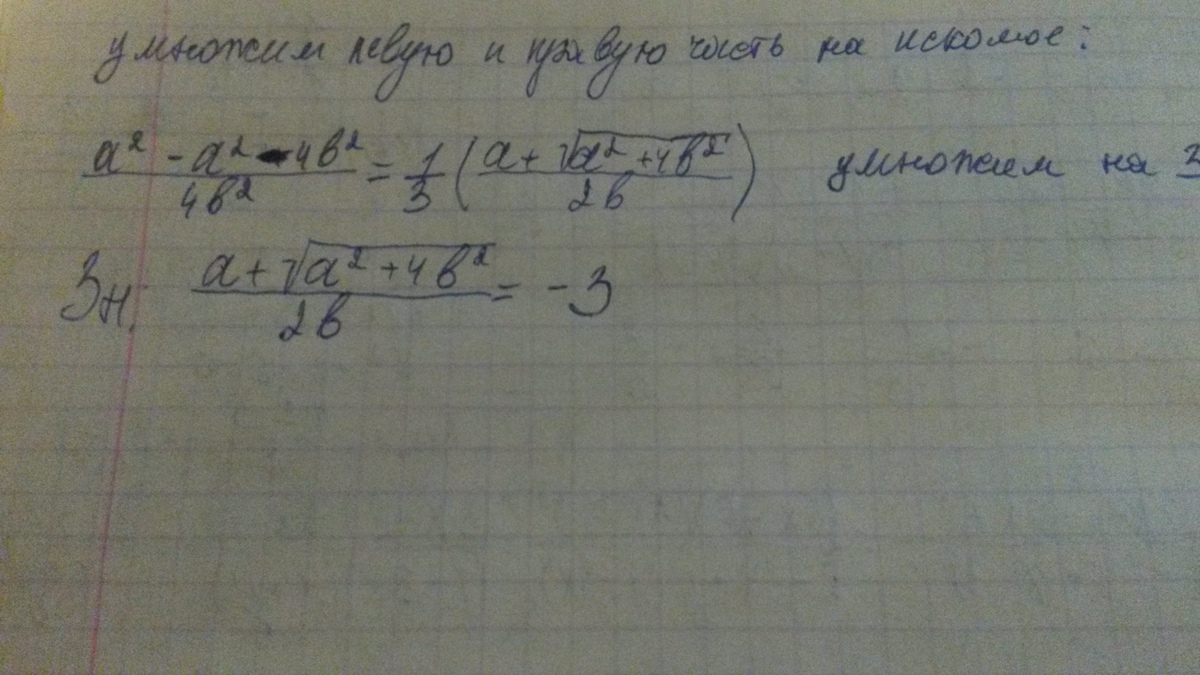 умножим левую и правую часть на искомое:
(a² - a² - 4b²)/(4b²) = 1/3 ((a + √(a² + 4b²))/(2b)) умножим на 3
Зн. (a + √(a² + 4b²))/(2b) = -3